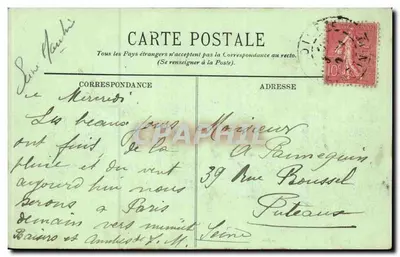 CARTE POSTALE
Tous les Pays étrangers n'acceptent pas la Correspondance au recto.
(Se renseigner à la Poste).
CORRESPONDANCE
ADRESSE
Mercredi
Les beaux jours
ont finis de la
pluie et du vent
aujourd hui nous
serons à Paris
demain vers minuit
Baisers et
Monsieur
A Pannequin
39 Rue Roussel
Puteaux
Seine
CPArama